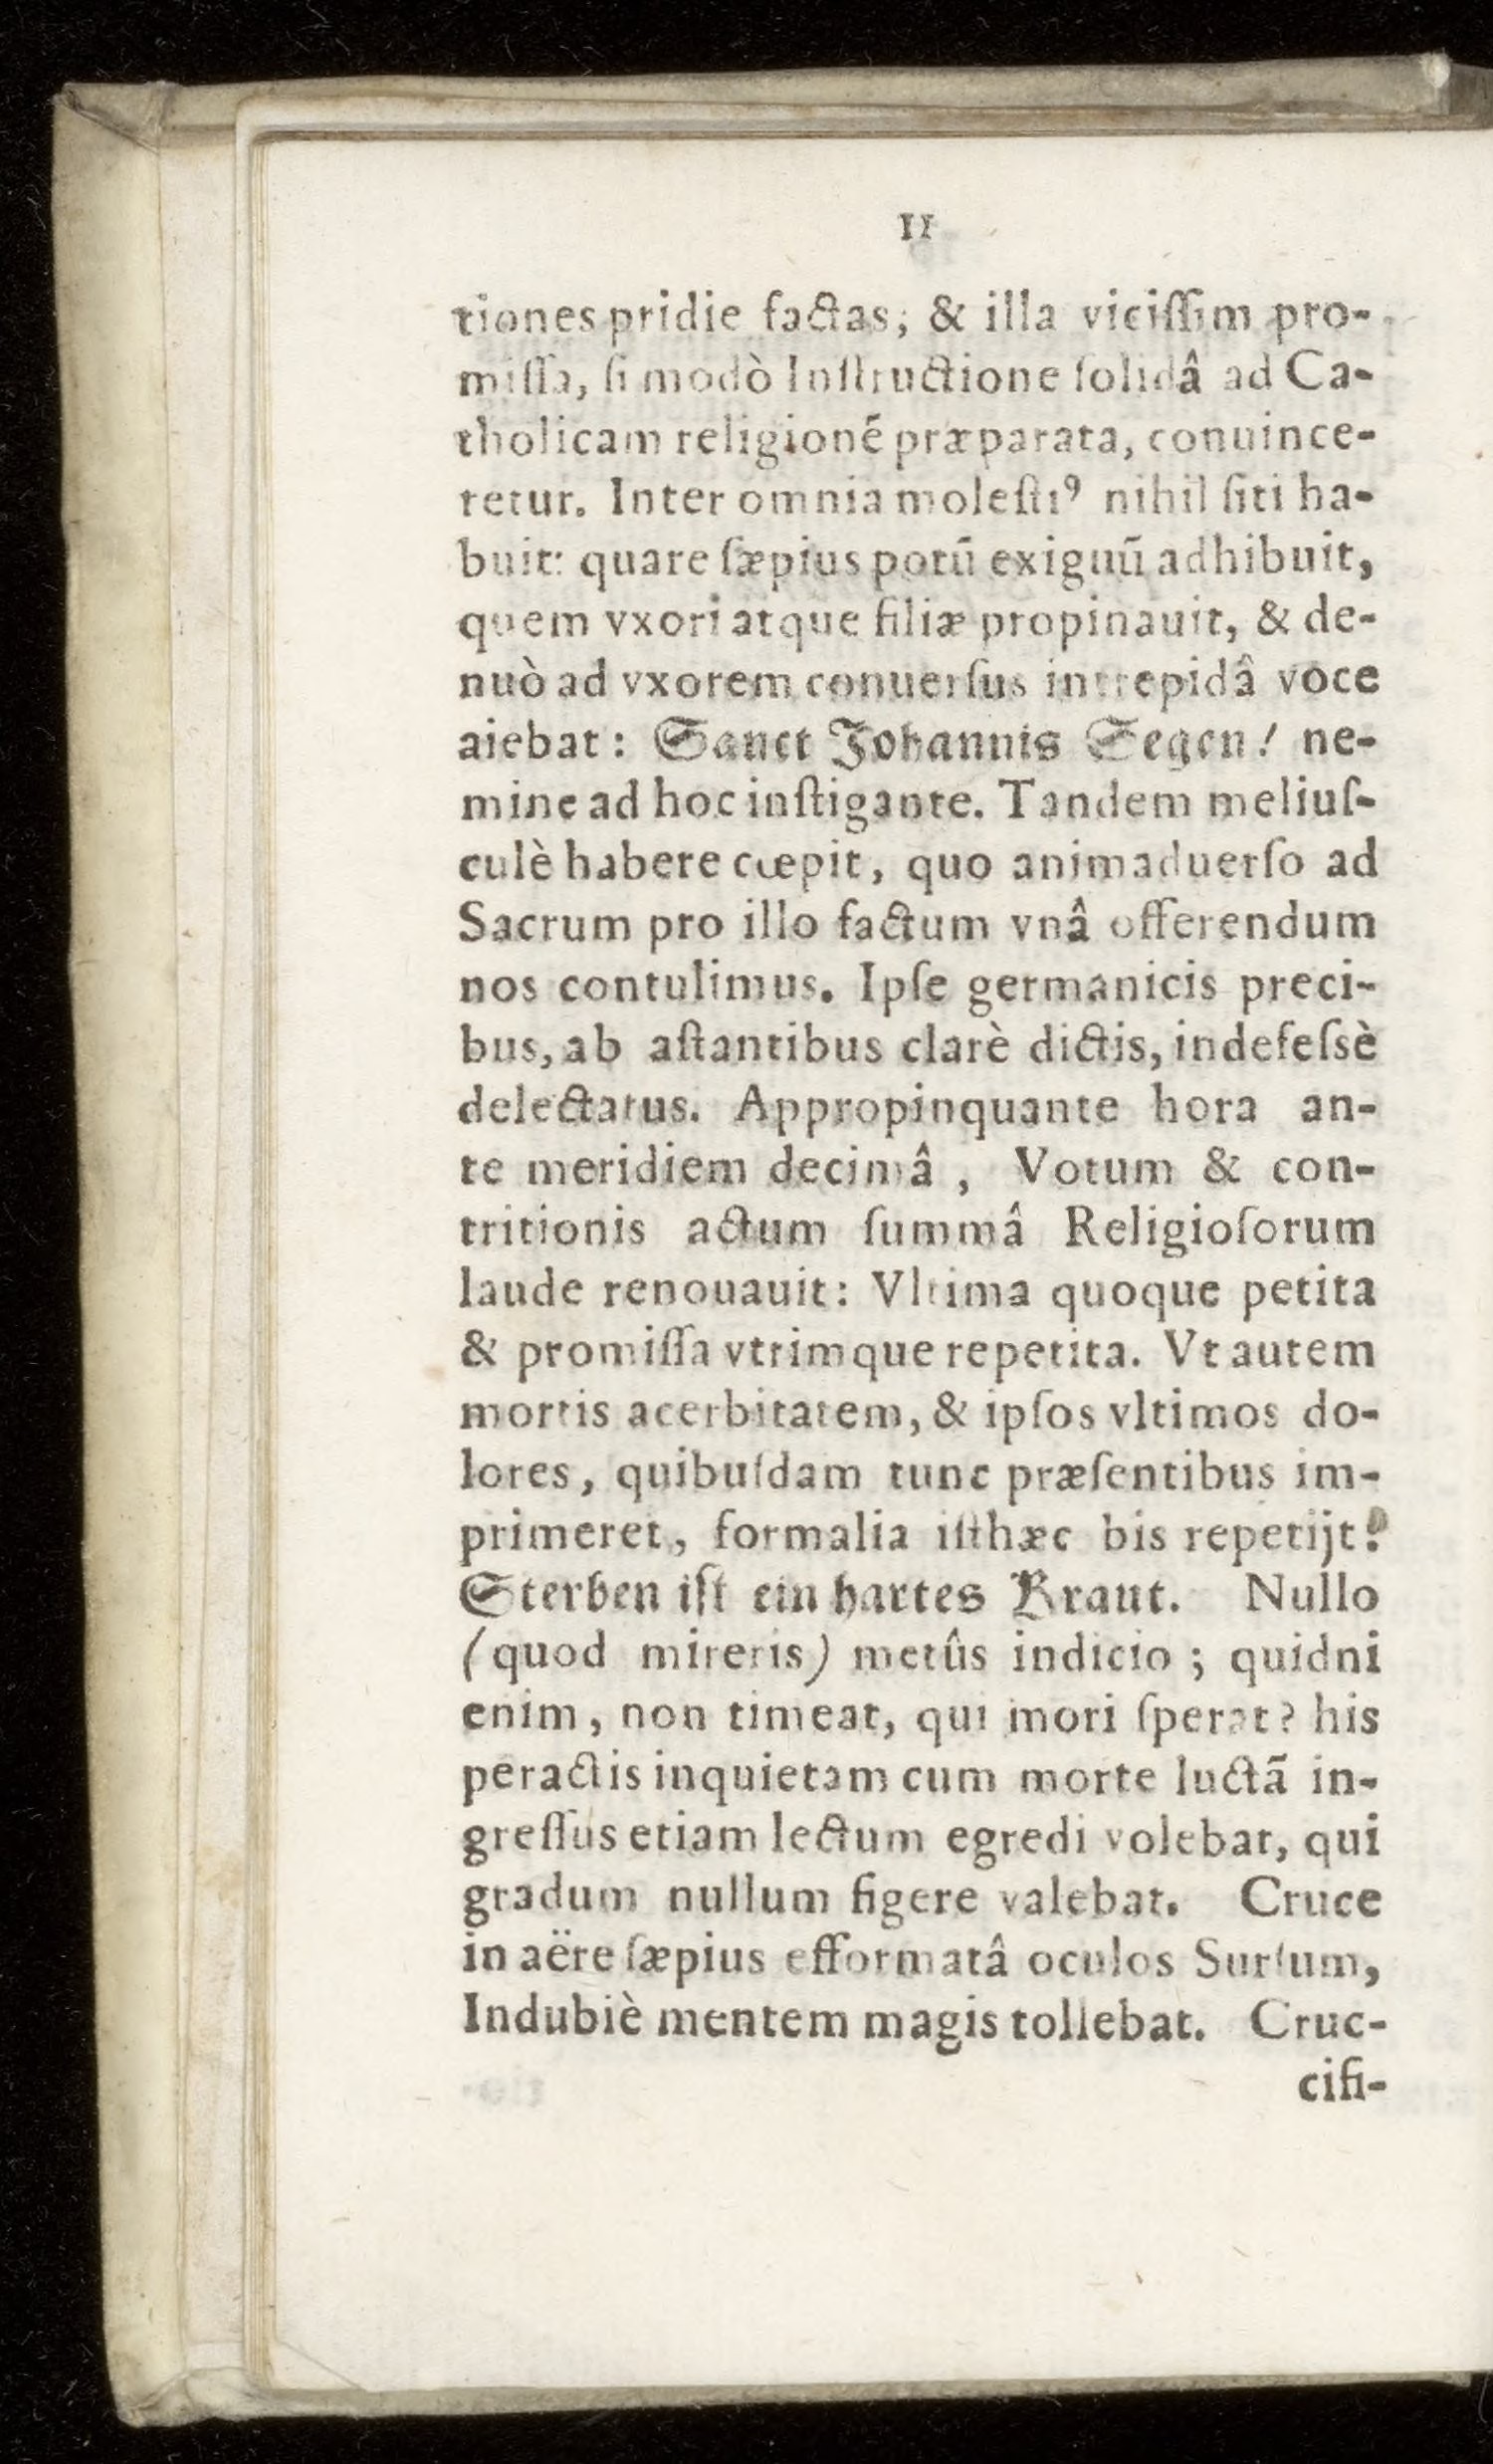 11
tiones pridie factas; & illa viciſſim pro-
miſſa, ſi modò Inſtructione ſolidâ ad Ca-
tholicam religionẽ præparata, conuince-
retur. Inter omnia moleſtiꝰ nihil ſiti ha-
buit: quare ſæpius potũ exiguũ adhibuit,
quem vxori atque filiæ propinauit, & de-
nuò ad vxorem conuerſus intrepidâ voce
aiebat: Sanct Johannis Segen! ne-
mine ad hoc inſtigante. Tandem meliuſ-
culè habere cœpit, quo animaduerſo ad
Sacrum pro illo factum vnâ offerendum
nos contulimus. Ipſe germanicis preci-
bus, ab aſtantibus clarè dictis, indefeſsè
delectatus. Appropinquante hora an-
te meridiem decimâ, Votum & con-
tritionis actum ſummâ Religioſorum
laude renouauit: Vltima quoque petita
& promiſſa vtrimque repetita. Vt autem
mortis acerbitatem, & ipſos vltimos do-
lores, quibuſdam tunc præſentibus im-
primeret, formalia iſthæc bis repetijt:
Sterben iſt ein hartes Kraut. Nullo
(quod mireris) metûs indicio; quidni
enim, non timeat, qui mori ſperat? his
peractis inquietam cum morte luctã in-
greſſus etiam lectum egredi volebat, qui
gradum nullum figere valebat. Cruce
in aëre ſæpius efformatâ oculos Surſum,
Indubiè mentem magis tollebat. Cruc-
cifi-